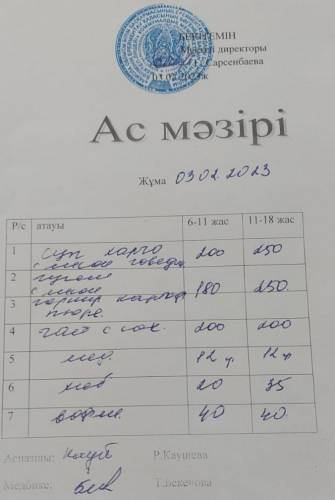 БЕКІТЕМІН
Мектеп директоры
Г. Сарсенбаева
03.02.2023ж
Ас мәзірі
Жұма 03 02. 2023
Р/с атауы 6-11 жас 11-18 жас
1 суп харчо 200 250
с мясом говяд
2 гуляш
с мясом 180 250
3 гарнир картоф
пюре.
4 чай с сах. 200 200
5 12 г 12 г
6 хлеб 20 35
7 40 40
Аспазшы: Р.Каушева
Медбике: Т.Бекенова